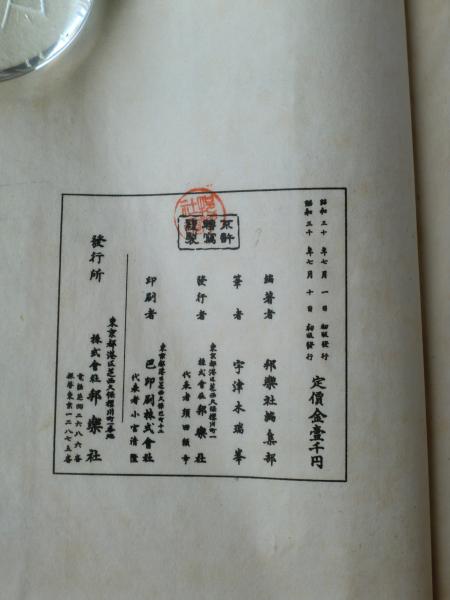 昭和三十年七月一日 初版發行
昭和三十年七月十日 初版發行
定價金壹千円
編著者 邦樂社編集部
筆者 宇津木瑞峯
東京都港区芝西久保櫻川町一
發行者 株式会社 邦樂社
代表者 須田
不許
轉寫
複製
社
印刷者 巴印刷株式會社
代表者 小宮清
東京都港区芝西久保櫻川町一番地
發行所 株式會社 邦樂社
電話芝㈣二六八六番
振替東京一二八七五番